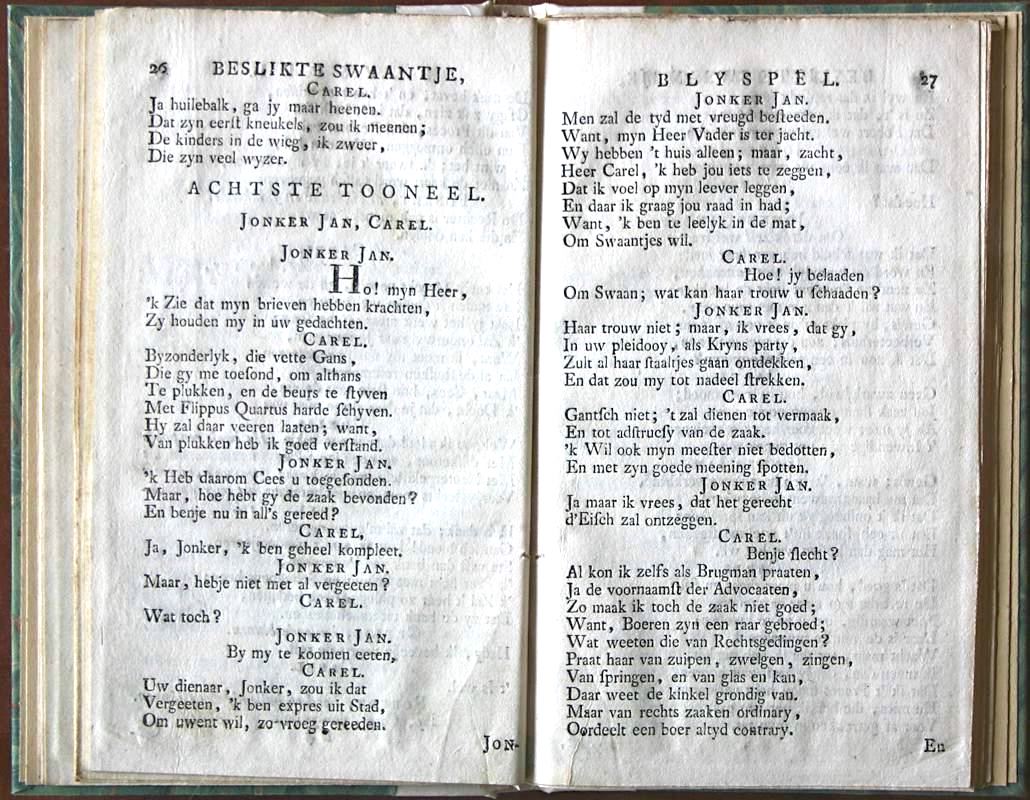 26 BESLIKTE SWAANTJE,
CAREL.
Ja huilebalk, ga jy maar heenen.
Dat zyn eerſt kneukels, zou ik meenen;
De kinders in de wieg, ik zweer,
Die zyn veel wyzer.
ACHTSTE TOONEEL.
JONKER JAN, CAREL.
JONKER JAN.
Ho! myn Heer,
'k Zie dat myn brieven hebben krachten,
Zy houden my in uw gedachten.
CAREL.
Byzonderlyk, die vette Gans,
Die gy me toeſond, om althans
Te plukken, en de beurs te ſtyven
Met Flippus Quartus harde ſchyven.
Hy zal daar veeren laaten; want,
Van plukken heb ik goed verſtand.
JONKER JAN.
'k Heb daarom Cees u toegeſonden.
Maar, hoe hebt gy de zaak bevonden?
En benje nu in all's gereed?
CAREL,
Ja, Jonker, 'k ben geheel kompleet.
JONKER JAN.
Maar, hebje niet met al vergeeten?
CAREL.
Wat toch?
JONKER JAN.
By my te koomen eeten,
CAREL.
Uw dienaar, Jonker, zou ik dat
Vergeeten, 'k ben expres uit Stad,
Om uwent wil, zo vroeg gereeden.
JON-
BLYSPEL. 27
JONKER JAN.
Men zal de tyd met vreugd beſteeden.
Want, myn Heer Vader is ter jacht.
Wy hebben 't huis alleen; maar, zacht,
Heer Carel, 'k heb jou iets te zeggen,
Dat ik voel op myn leever leggen,
En daar ik graag jou raad in had;
Want, 'k ben te leelyk in de mat,
Om Swaantjes wil.
CAREL.
Hoe! jy belaaden
Om Swaan; wat kan haar trouw u ſchaaden?
JONKER JAN.
Haar trouw niet; maar, ik vrees, dat gy,
In uw pleidooy, als Kryns party,
Zult al haar ſtaaltjes gaan ontdekken,
En dat zou my tot nadeel ſtrekken.
CAREL.
Gantſch niet; 't zal dienen tot vermaak,
En tot adſtrucſy van de zaak.
'k Wil ook myn meeſter niet bedotten,
En met zyn goede meening ſpotten.
JONKER JAN.
Ja maar ik vrees, dat het gerecht
d'Eiſch zal ontzeggen.
CAREL.
Benje ſlecht?
Al kon ik zelfs als Brugman praaten,
Ja de voornaamſt der Advocaaten,
Zo maak ik toch de zaak niet goed;
Want, Boeren zyn een raar gebroed;
Wat weeten die van Rechtsgedingen?
Praat haar van zuipen, zwelgen, zingen,
Van ſpringen, en van glas en kan,
Daar weet de kinkel grondig van.
Maar van rechts zaaken ordinary,
Oordeelt een boer altyd contrary.
En